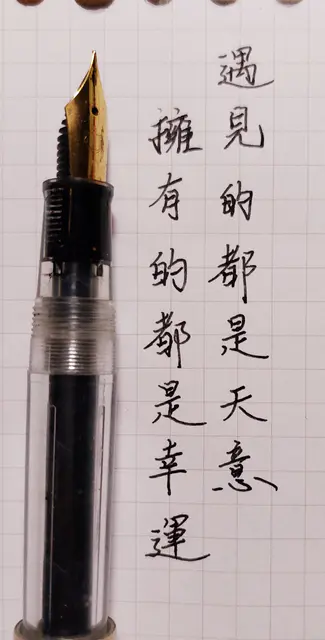 遇見的都是天意
擁有的都是幸運